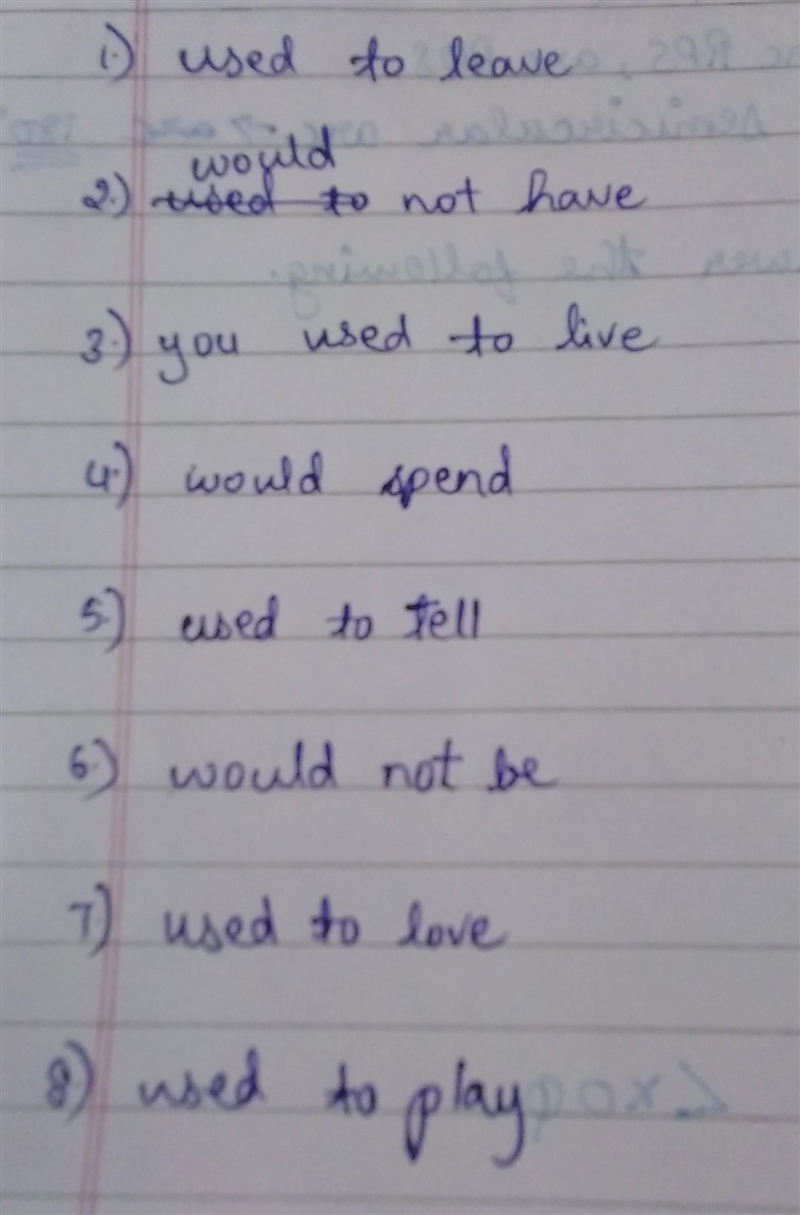 1.) used to leave
would
2.) used to not have
3.) you used to live
4.) would spend
5.) used to tell
6.) would not be
7.) used to love
8.) used to play